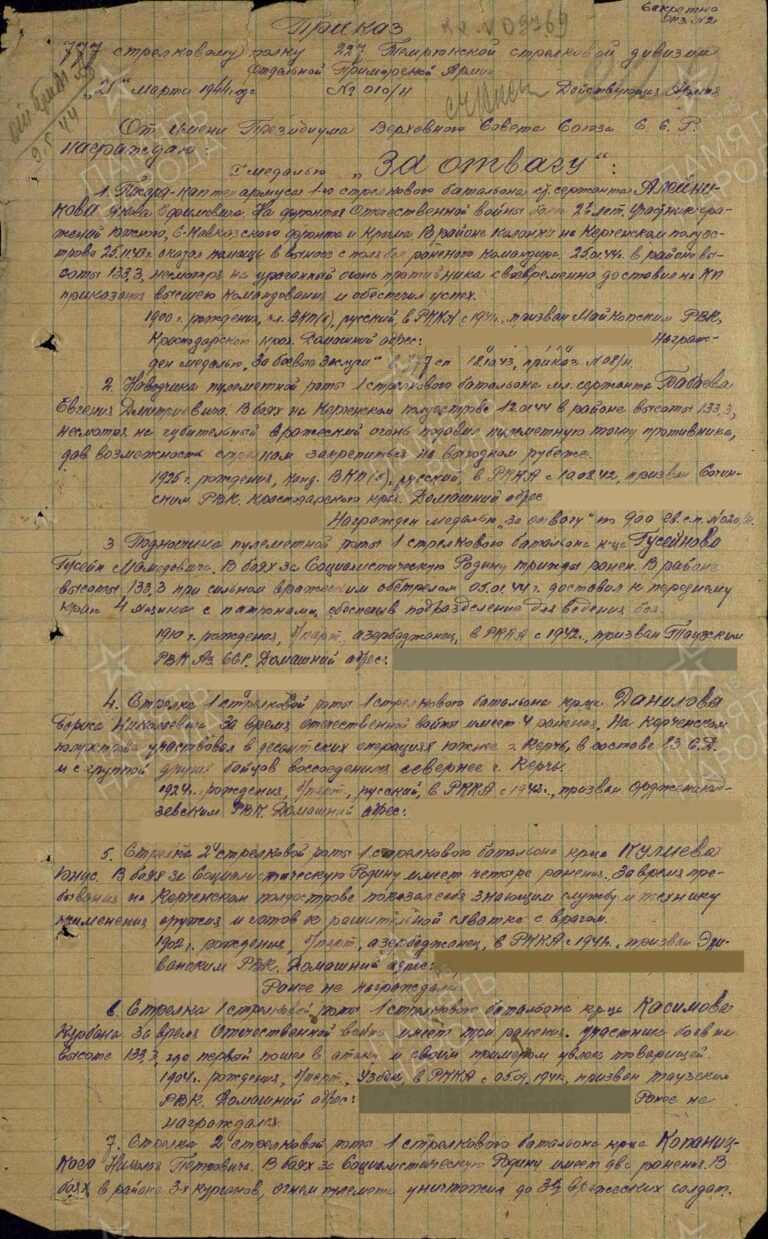 Секретно
Экз. №2
Приказ
вх. №03769
777 стрелковому полку 227 Темрюкской стрелковой дивизии
Отдельной Приморской Армии
"21" марта 1944 года № 010/н Действующая Армия
9.5.44
От имени Президиума Верховного Совета Союза С.С.Р.
награждаю:
I медалью "За отвагу":
1. каптенармуса 1-го стрелкового батальона ст. сержанта
кова Якова Ефимовича. На фронтах Отечественной войны более 2х лет, участник сра-
жений Южного, С-Кавказского фронта и Крыма. В районе Колонки на Керченском полуос-
трове 25.11.43 г. оказал помощь в выносе с поля боя раненого командира, 25.01.44 г. в районе вы-
соты 133,3, несмотря на ураганный огонь противника своевременно доставил на КП
приказания высшего командования и обеспечил успех.
1900 г. рождения, чл. ВКП(б), русский, в РККА с 1941 г. призван Майкопским РВК,
Краснодарского края. Домашний адрес: Награж-
ден медалью "За боевые заслуги" 777 сп 18.10.43, приказ №08/н.
2. Наводчика пулеметной роты 1 стрелкового батальона мл. сержанта Бабаева
Евгения Дмитриевича. В боях на Керченском полуострове 12.01.44 в районе высоты 133,3,
несмотря на губительный вражеский огонь подавил пулеметную точку противника,
дав возможность стрелкам закрепиться на выгодном рубеже.
1925 г. рождения, канд. ВКП(б), русский, в РККА с 10.08.42, призван Сочин-
ским РВК. Краснодарского края. Домашний адрес
Награжден медалью "За отвагу" по 900 сп. №020/н.
3. Подносчика пулеметной роты 1 стрелкового батальона кр-ца Гусейнова
Гусейн Мамедовича. В боях за Социалистическую Родину трижды ранен. В районе
высоты 133,3 при сильном вражеским обстрелом 05.01.44 г. доставил к переднему
краю 4 ящика с патронами, обеспечив подразделение для ведения боя.
1910 г. рождения, б/парт, азербеджанец, в РККА с 1942 г., призван Таузским
РВК Аз. ССР. Домашний адрес:
4. Стрелка 1 стрелковой роты 1 стрелкового батальона кр-ца Данилова
Бориса Николаевича. За время отечественной войны имеет 4 ранения. На Керченском
полуострове участвовал в десантских операциях южнее г. Керчь, в составе 83 С.Д.
и с группой других бойцов воссоединился севернее г. Керчь.
1924 г. рождения, б/парт, русский, в РККА с 1942 г., призван Орджоникид-
зевским РВК. Домашний адрес:
5. Стрелка 2й стрелковой роты 1 стрелкового батальона кр-ца Кулиева
Юнус. В боях за Социалистическую Родину имеет четыре ранения. За время пре-
бывания на Керченском полуострове показал себя знающим службу и технику
применения оружия и готов к решительной схватке с врагом.
1902 г. рождения, б/парт, азербеджанец, в РККА с 1941 г., призван Эри-
ванским РВК. Домашний адрес:
Ранее не награждался.
6. Стрелка 1 стрелковой роты 1 стрелкового батальона кр-ца Касимова
Курбана. За время Отечественной войны имеет три ранения. Участник боев на
высоте 133,3, где первой пошел в атаку и своим примером увлек товарищей.
1904 г. рождения, б/парт, узбек, в РККА с 05.09.1941, призван Таузским
РВК. Домашний адрес: Ранее не
награждался.
7. Стрелка 2 стрелковой роты 1 стрелкового батальона кр-ца Копаниц-
кого Николая Петровича. В боях за Социалистическую Родину имеет два ранения. В
боях в районе 3-х курганов, огнем пулемета уничтожил до 3х вражеских солдат.
ПАМЯТЬ НАРОДА